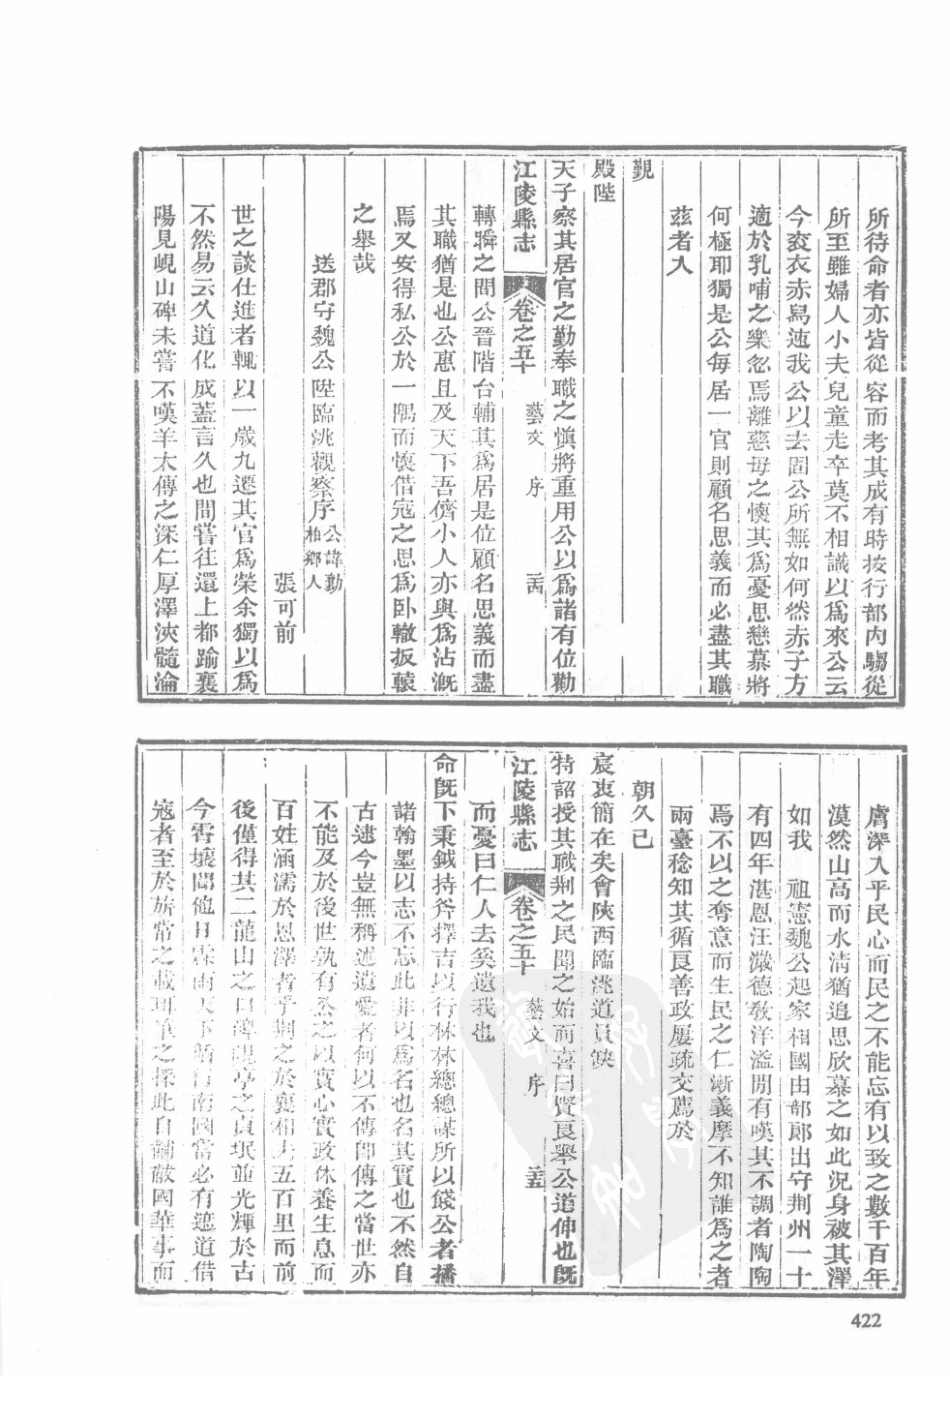 所待命者亦皆從容而考其成有時按行部內騶從
所至雖婦人小夫兒童走卒莫不相識以爲來公云
今衮衣赤舄速我公以去固公所無如何然赤子方
適於乳哺之樂忽焉離慈母之懷其爲憂思戀慕將
何極耶獨是公每居一官則顧名思義而必盡其職
茲者入
覲
殿陛
天子察其居官之勤奉職之愼將重用公以爲諸有位勸
江陵縣志 卷之五十 藝文 序
轉瞬之間公晉階台輔其爲居是位顧名思義而盡
其職猶是也公惠且及天下吾儕小人亦與爲沾漑
焉又安得私公於一隅而懷借寇之思爲臥轍扳轅
之舉哉
送郡守魏公陞臨洮觀察序 公諱勷柏鄉人
張可前
世之談仕進者輒以一歲九遷其官爲榮余獨以爲
不然易云久道化成蓋言久也間嘗往還上都踰襄
陽見峴山碑未嘗不嘆羊太傅之深仁厚澤浹髓淪
膚深入乎民心而民之不能忘有以致之數千百年
漠然山高而水清猶追思欣慕之如此況身被其澤
如我 祖憲魏公起家相國由部郎出守荆州一十
有四年湛恩汪濊德敎洋溢閒有嘆其不調者陶陶
焉不以之奪意而生民之仁漸義摩不知誰爲之者
兩臺稔知其循良善政屢疏交薦於
朝久已
宸衷簡在矣會陝西臨洮道員缺
特詔授其職荆之民聞之始而喜曰賢良舉公道伸也旣
江陵縣志 卷之五十 藝文 序
而憂曰仁人去奚遺我也
命旣下秉鉞持斧擇吉以行林林總總謀所以餞公者播
諸翰墨以志不忘此非以爲名也名其實也不然自
古逮今豈無稱述遺愛者何以不傳卽傳之當世亦
不能及於後世孰有公之以實心實政休養生息而
百姓涵濡於恩澤者乎荆之於襄相去五百里而前
後僅得其二龍山之口碑峴亭之貞珉並光輝於古
今霄壤聞他日霖雨天下暫行南國當必有遮道借
寇者至於旂常之載珥筆之採此自黼黻國華事而
422